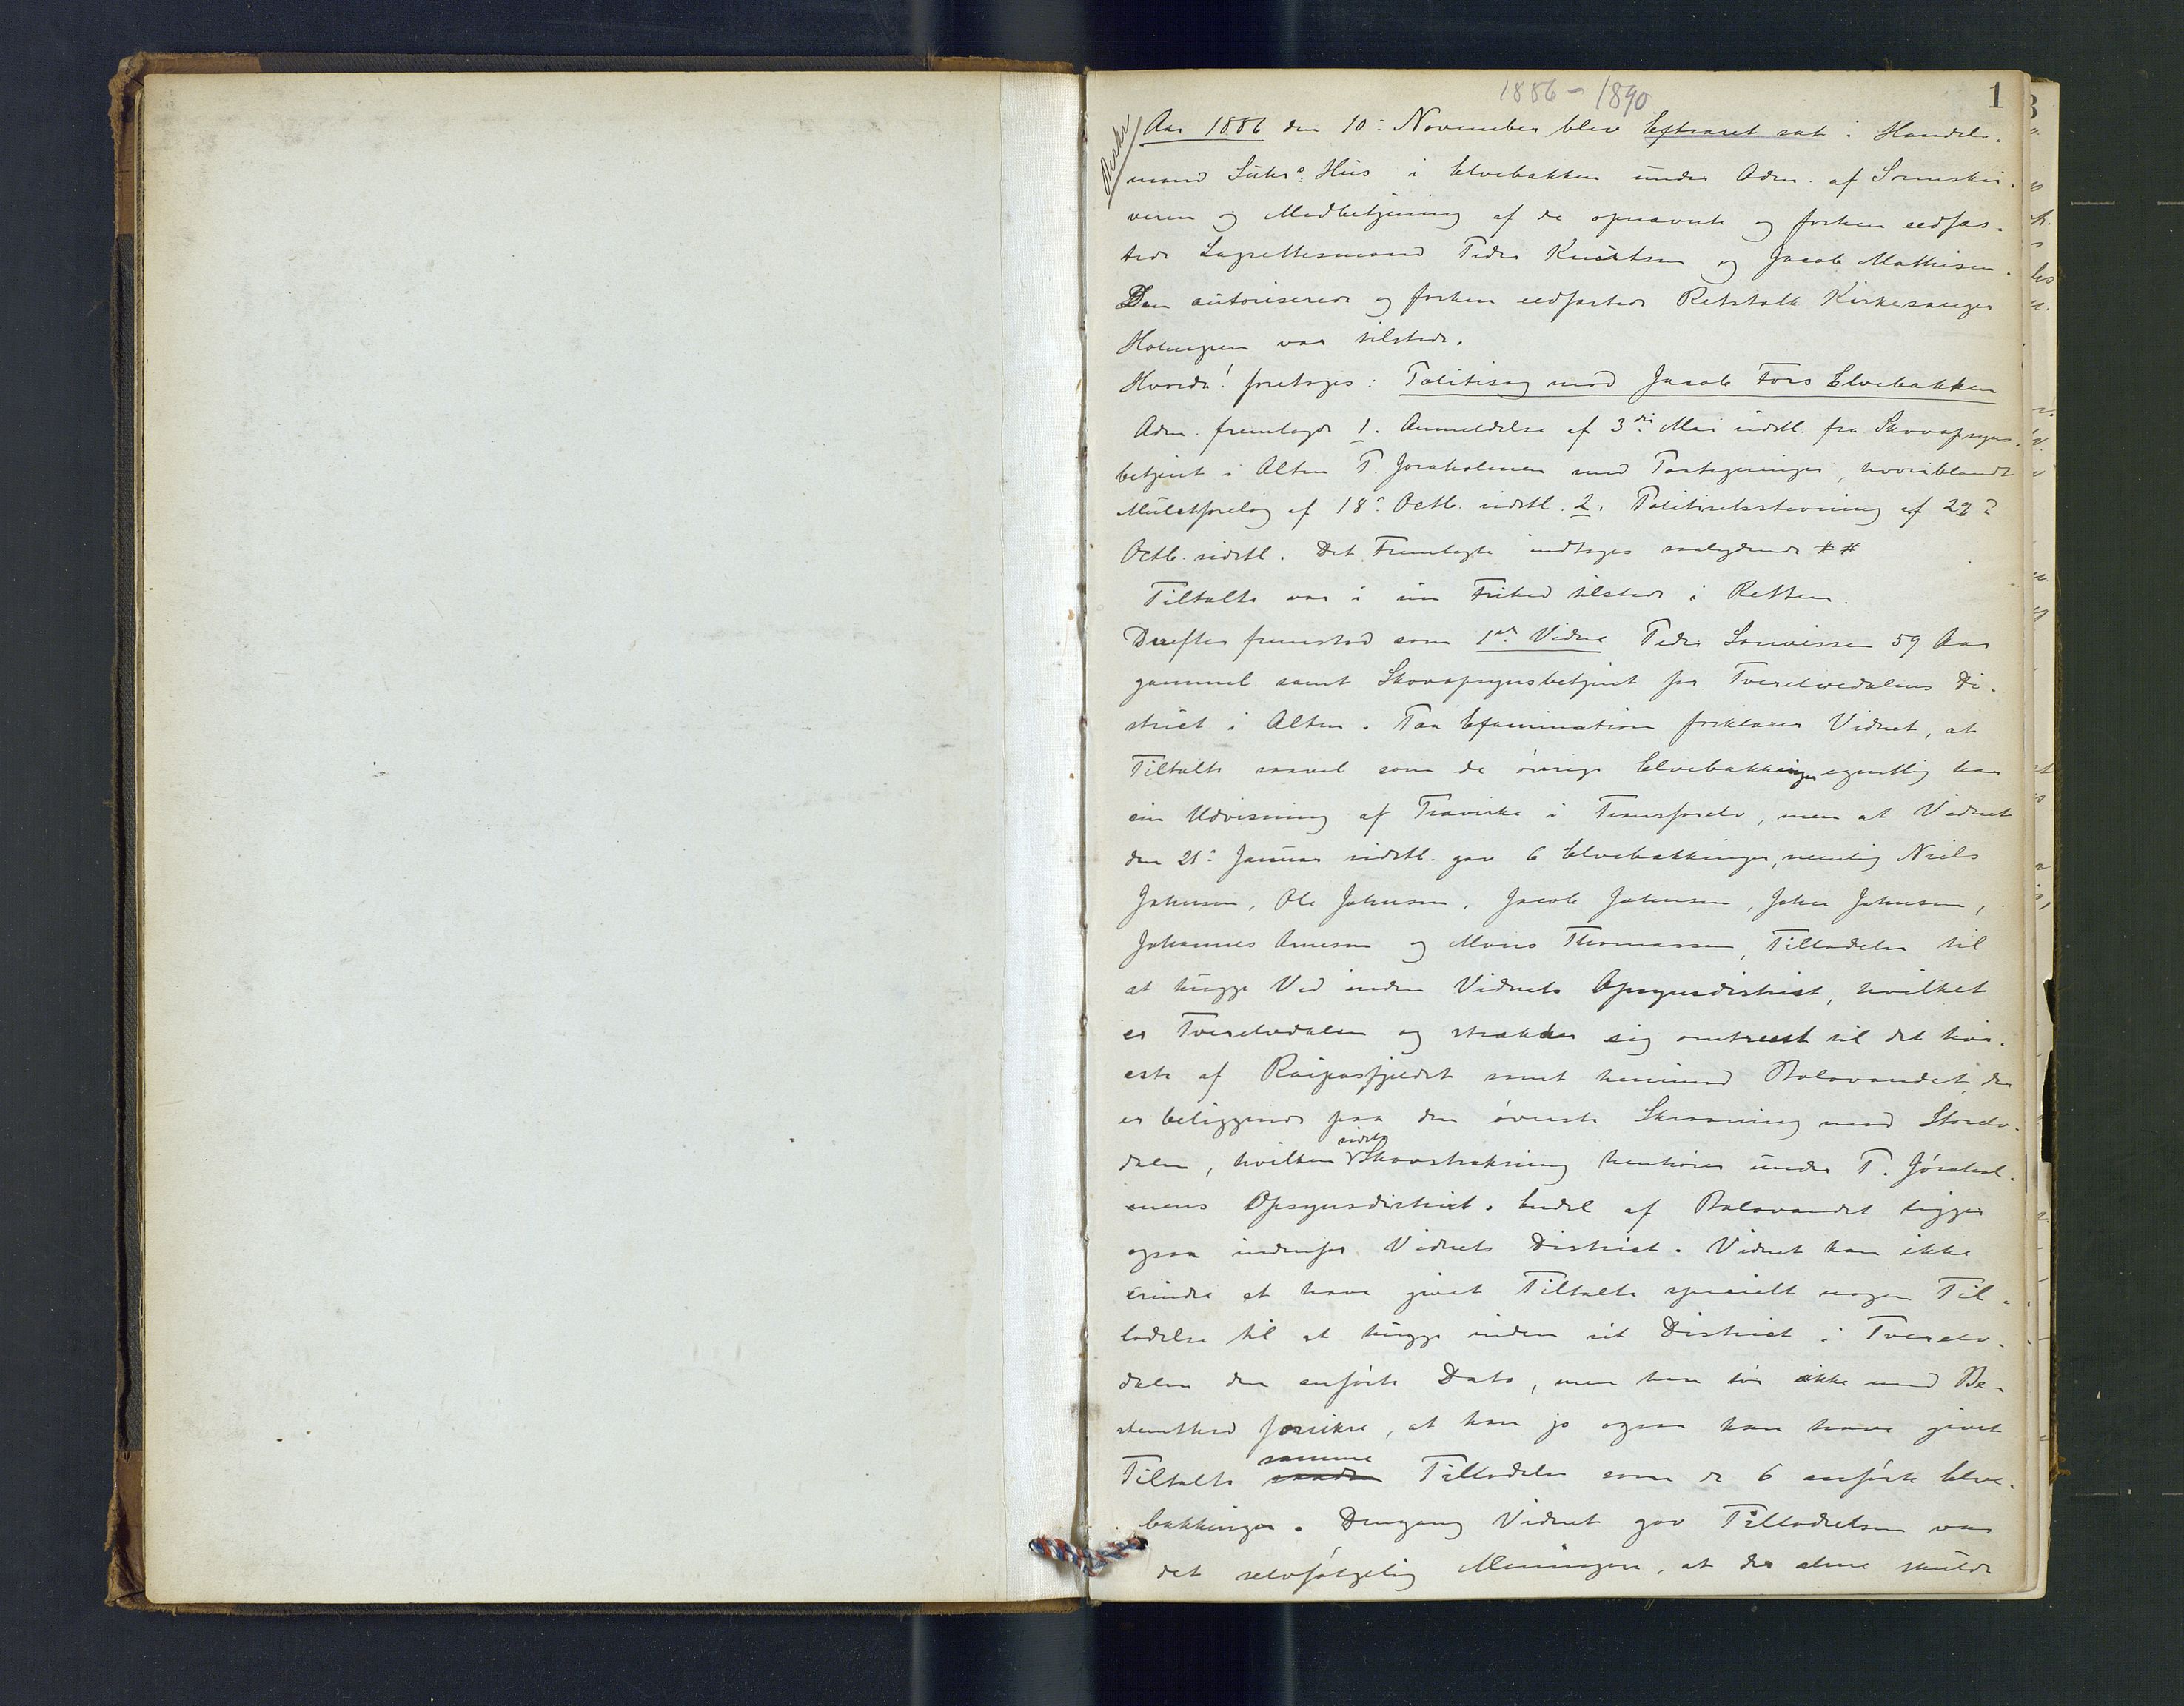 1886-1890
1
Aar 1886 den 10: November blev Extraret sat i Handels-
mand Hüs i Elvebakken under Adm. af Sorenskri-
veren og Medbetjening af de opnævnte og forhen eedfæs-
tede Lagrettesmænd Peder Knütsen og Jacob Mathisen.
Den autoriserede og forhen eedfæstede Retstolk Kirkesanger
Holmgren var tilstede.
Hvorda! foretoges: Politisag mod Jacob Fors Elvebakken
Adm. fremlagde 1. Anmeldelse af 3die Mai sidstl. fra Skovopsyns-
betjent i Alten P. Jøraholmen med Paategninger, hvoriblandt
Mülctforelæg af 18: Octb. sidstl. 2. Politiretsstevning af 29:
Octb. sidstl. Det Fremlagte indtages saalydende # #
Tiltalte var i sin Frihed tilstede i Retten.
Derefter fremstod som 1ste Vidne Peder 59 Aar
gammel samt Skovopsynsbetjent for Tverelvedalens Di-
strict i Alten. Paa Examination forklarer Vidnet, at
Tiltalte saavel som de øvrige Elvebakkinger egentlig har
sin Udvisning af Trævirke i Transfarelv, men at Vidnet
den 21: Januar sidstl. gav 6 Elvebakkinger, nemlig Niels
Johnsen, Ole Johnsen, Jacob Johnsen, John Johnsen,
Johannes Arnesen og Mons Thomassen, Tilladelse til
at hugge Ved inden Vidnets Opsynsdistrict, hvilket
er Tverelvdalen og strækker sig omtrent til det høi-
este af Raipasfjeldet samt henimod Bolovandet, der
er beliggende paa den øverste Skraaning mod Storelv-
dalen, hvilken sidste Skovstrækning henhører under P. Jørahol-
mens Opsynsdistrict. Endel af Bolovandet ligger
ogsaa indenfor Vidnets District. Vidnet kan ikke
erindre at have givet Tiltalte specielt nogen Til-
ladelse til at hugge inden sit District i Tverelv-
dalen den anførte Dato, men han tør ikke med Be-
stemthed forsikre, at han jo ogsaa kan have givet
Tiltalte samme Tilladelse som de 6 anførte Elve-
bakkinger. Dengang Vidnet gav Tilladelsen var
det selvfølgelig Meningen, at de alene skulde